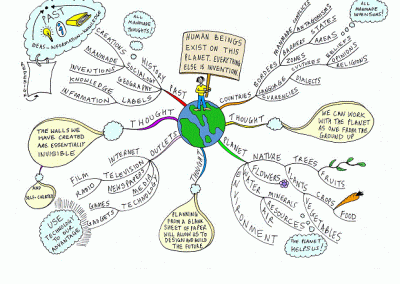 PAST
IDEAS INFORMATION
ALL MANMADE THOUGHTS!
CREATIONS
HISTORY
MANMADE
SOCIOLOGY
INVENTIONS
GEOGRAPHY
KNOWLEDGE
LABELS
INFORMATION
PAST
HUMAN BEINGS
EXIST ON THIS
PLANET. EVERYTHING
ELSE IS INVENTION.
ALL MANMADE INVENTIONS!
BORDERS
BARRIERS
STATES
AREAS
ZONES
BELIEFS
OPINIONS
CULTURES
RELIGIONS
LANGUAGE
DIALECTS
CURRENCIES
COUNTRIES
THOUGHT
THE WALLS WE
HAVE CREATED
ARE ESSENTIALLY
INVISIBLE
AND
SELF-CREATED
THOUGHT
WE CAN WORK
WITH THE PLANET
AS ONE FROM THE
GROUND UP
OUTLETS
INTERNET
FILM
TELEVISION
RADIO
NEWSPAPERS
MEDIA
GAMES
TECHNOLOGY
GADGETS
USE
TECHNOLOGY
TO OUR
ADVANTAGE
THOUGHT
PLANNING
FROM A BLANK
SHEET OF PAPER
WILL ALLOW US TO
DESIGN AND BUILD
THE FUTURE
PLANET
NATURE
TREES
FLOWERS
PLANTS
FRUITS
WATER
MINERALS
CROPS
VEGETABLES
FOOD
RESOURCES
AIR
ENVIRONMENT
THE PLANET
HELPS US!